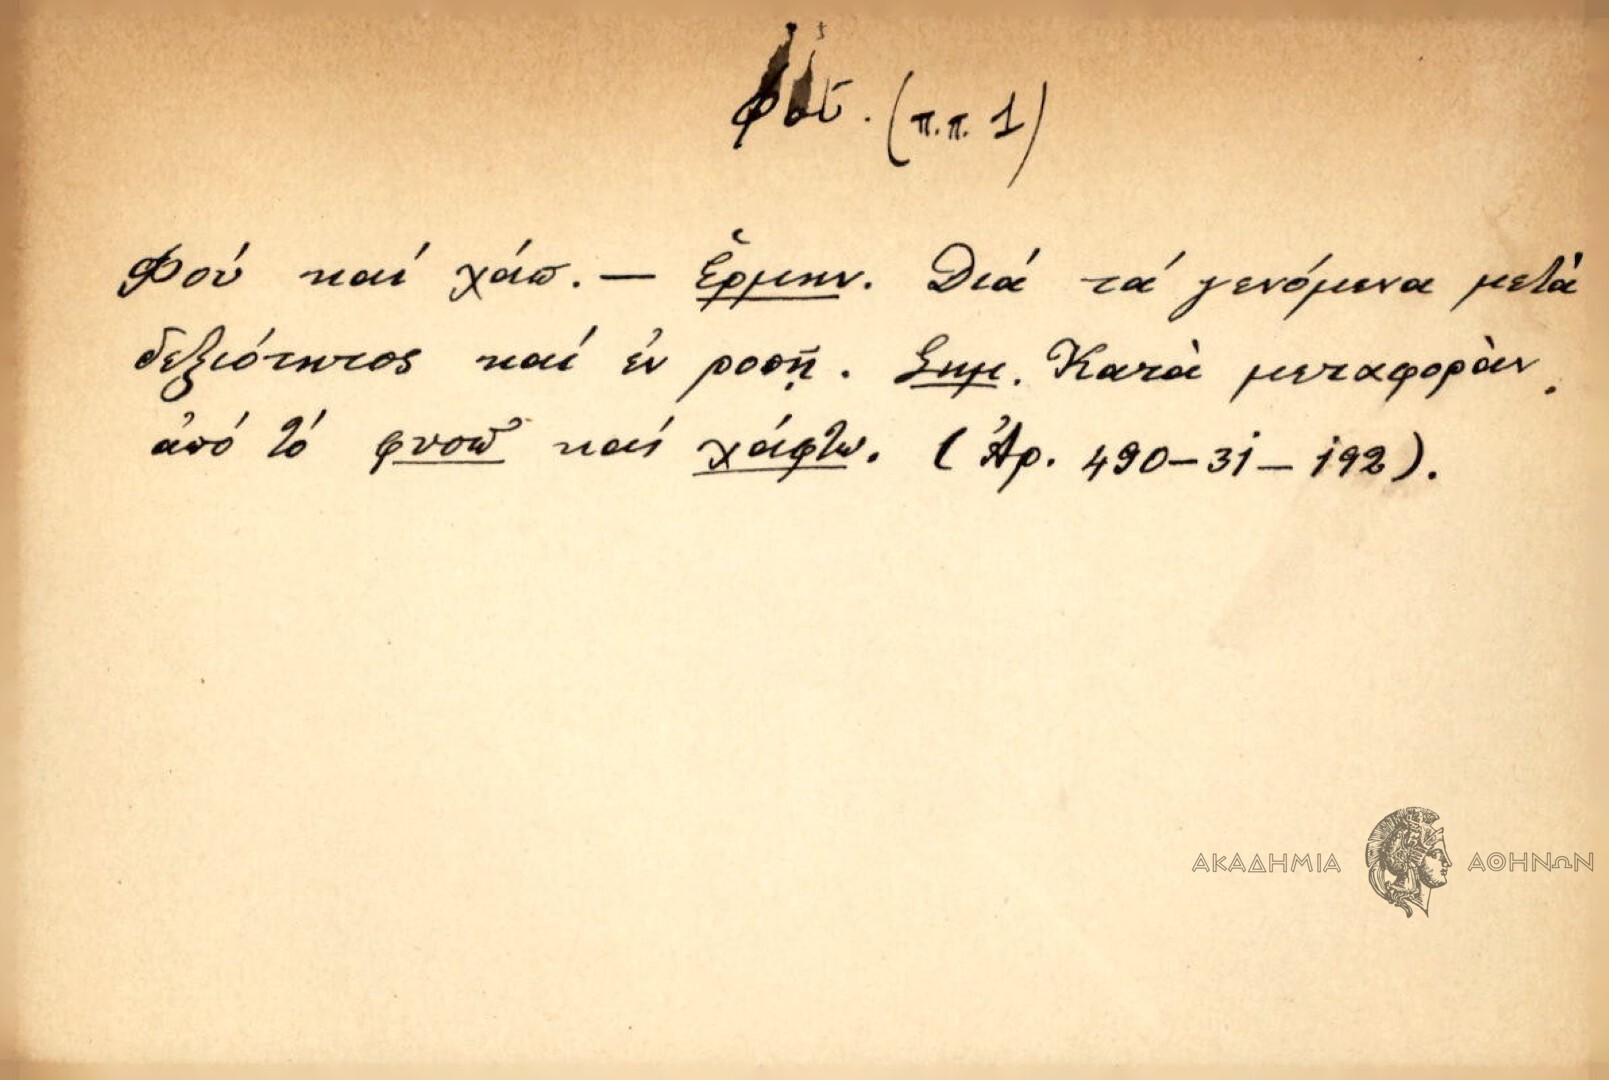 Φού. (π.π. 1)
Φού καί χάπ. — Ἑρμην. Διά τά γενόμενα μετὰ
δεξιότητος καί ἐν ροπῇ. Σημ. Κατὰ μεταφορὰν
ἀπό τό φυσῶ καί χάφτω. (Ἀρ. 490-31-192).
ΑΚΑΔΗΜΙΑ ΑΘΗΝΩΝ